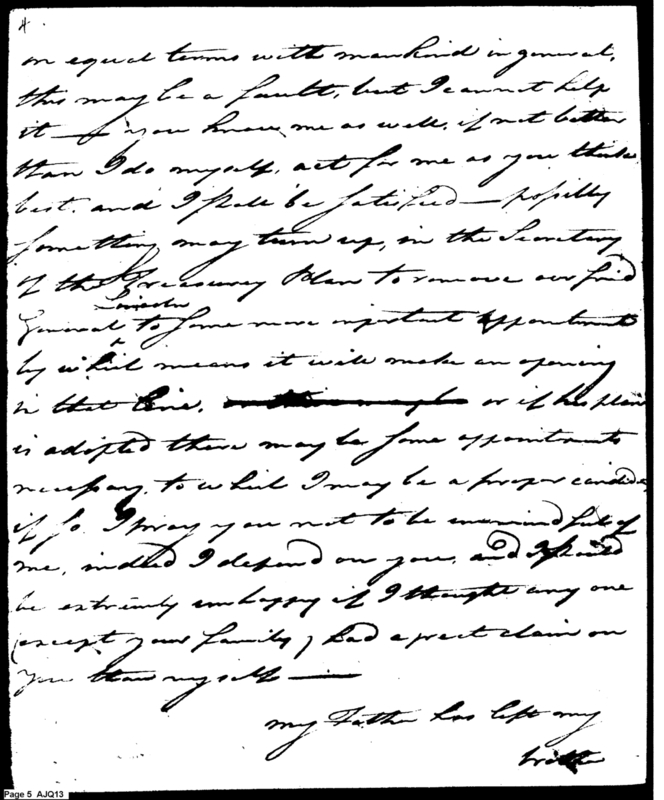 4.
on equal terms with mankind in general,
this may be a fault, but I cannot help
it — you know me as well, if not better
than I do myself, act for me as you think
best. and I shall be satisfied — possibly
something may turn up, in the Secretary
of the Treasurey Plan to remove our frid
Lincoln
General to some more important appointment
by which means it will make an opening
in that line, or if his plan
is adopted there may be some appointments
necessary, to which I may be a proper candidate
if so. I pray you not to be unmindful of
me, indeed I depend on you, and I should
be extremly unhappy if I thought any one
(except your family) had a claim on
you than myself —
my Father has left my
Page 5 AJQ13